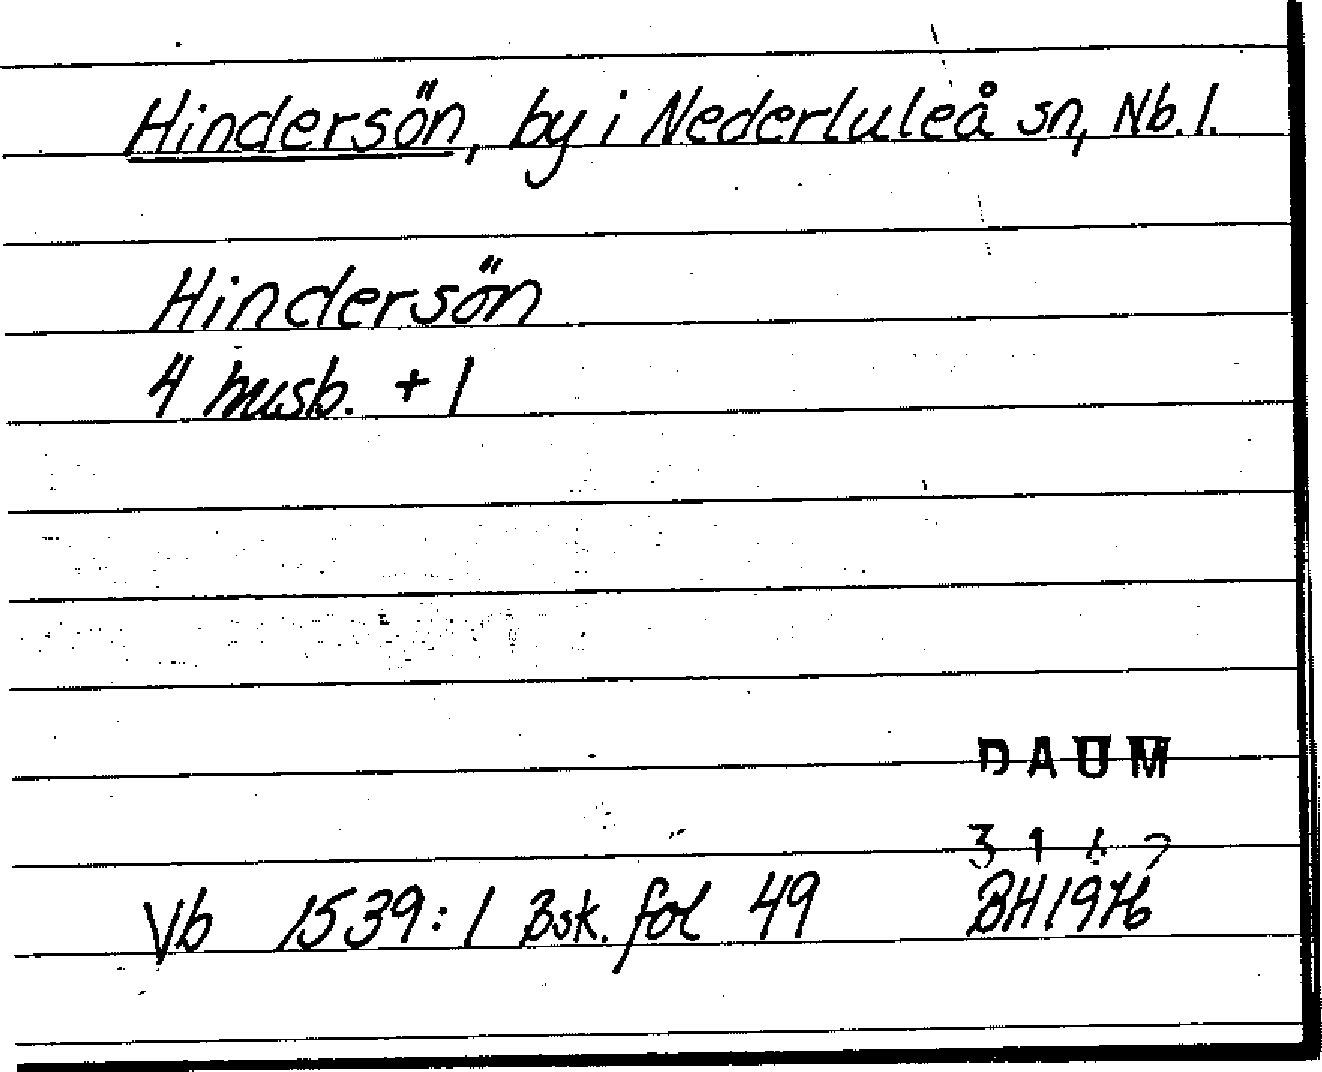 Hindersön, by i Nederluleå sn, Nb. l.
Hindersön
4 husb. + 1
DAUM
Vb 1539:1 Bsk. fol 49
BH 1976